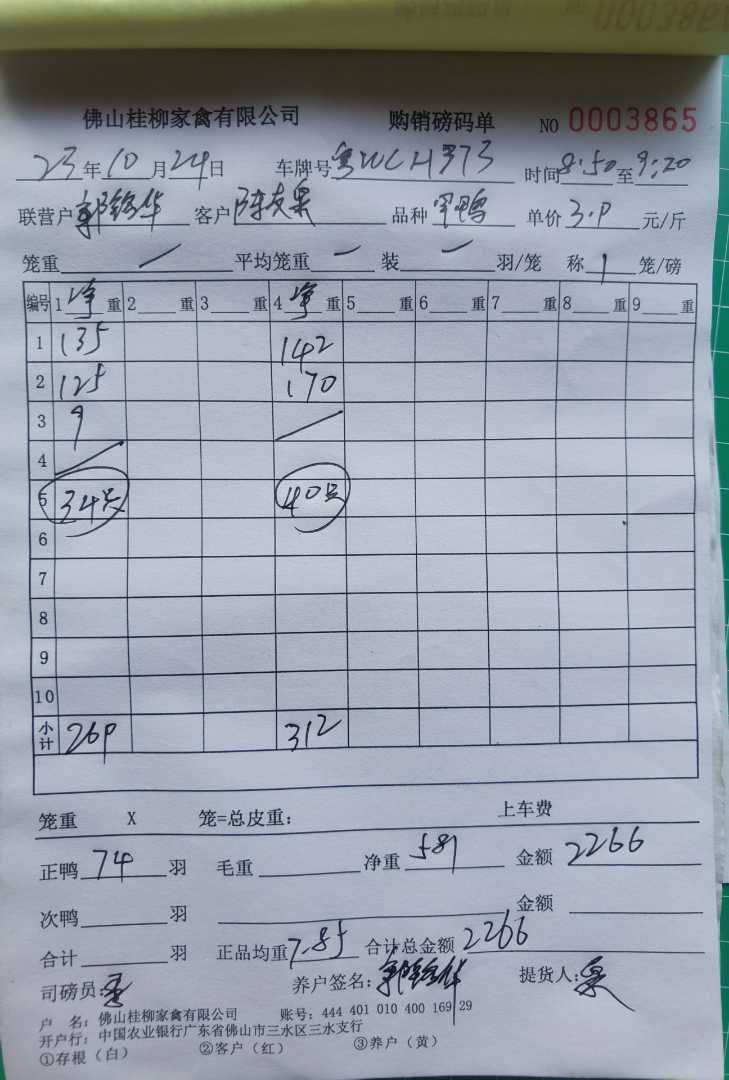 佛山桂柳家禽有限公司 购销磅码单 NO 0003865
23年10月24日 车牌号粤WCH373 时间8:50至9:20
联营户 郭 华 客户 陈友果 品种 鸭 单价3.9元/斤
笼重 / 平均笼重 一 装 一 羽/笼 称1笼/磅
编号 1净重 2 重 3 重 4净重 5 重 6 重 7 重 8 重 9 重
1 135 142
2 125 170
3 9 /
4 /
5 34只 40只
6
7
8
9
10
小计 269 312
笼重 X 笼=总皮重: 上车费
正鸭74羽 毛重 净重581 金额2266
次鸭 羽 金额
合计 羽 正品均重7.85 合计总金额2266
司磅员: 养户签名:郭 华 提货人:果
户 名:佛山桂柳家禽有限公司 账号:444 401 010 400 169 29
开户行:中国农业银行广东省佛山市三水区三水支行
①存根(白) ②客户(红) ③养户(黄)